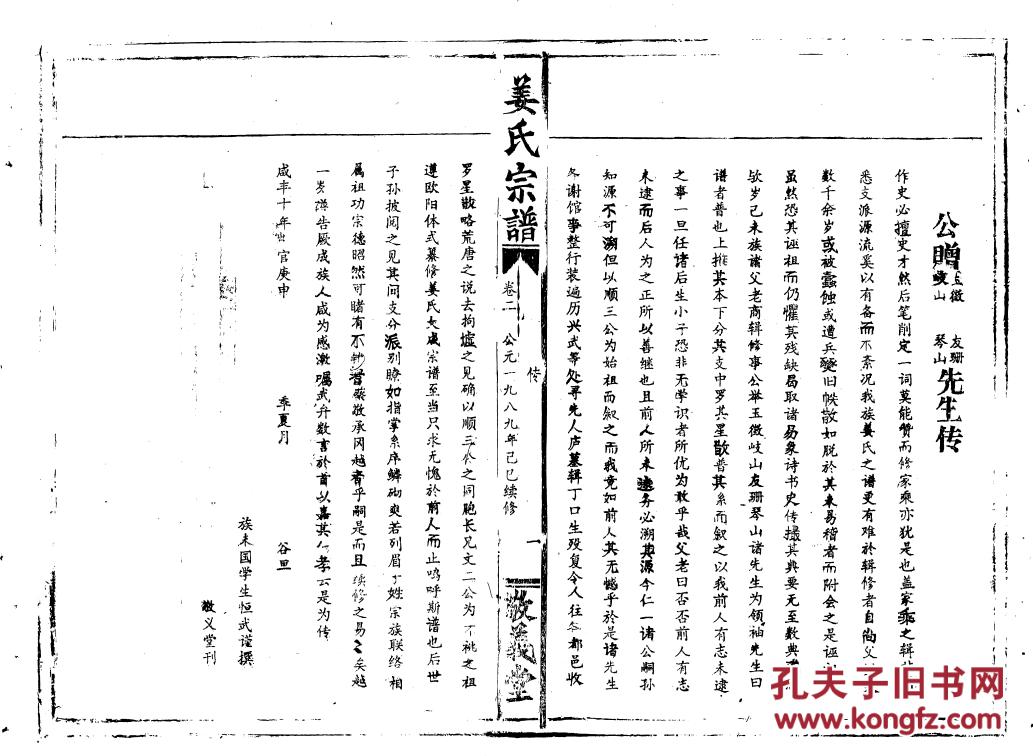 公赠玉徽 岐山 友珊 琴山先生传
作史必擅史才然后笔削定一词莫能赞而修家乘亦犹是也盖家乘之辑
悉支派源流奚以有备而不紊况我族姜氏之谱更有难於辑修者自尚父
数千余岁或被蠹蚀或遭兵燹旧帙散如脱於其未易稽者而附会之是诬
虽然恐其诬祖而仍惧其残缺局取诸易象诗书史传撮其典要无至数典
欤岁己未族诸父老商辑修事公举玉徽岐山友珊琴山诸先生为领袖先生曰
谱者普也上推其本下分其支中罗其星散普其系而叙之以我前人有志未逮
之事一旦任诸后生小子恐非无学识者所优为敢乎哉父老曰否否前人有志
未逮而后人为之正所以善继也且前人所未逮务必溯其源今仁一诸公嗣孙
知源不可溯但以顺三公为始祖而叙之而我竟如前人其无憾乎於是诸先生
冬谢馆事整行装遍历兴武等处寻先人庐墓辑丁口生殁复令人往各都邑收
姜氏宗譜
卷二
公元一九八九年己巳续修
传
一
敬义堂
罗星散略荒唐之说去拘墟之见确以顺三公之同胞长兄文二公为不祧之祖
遵欧阳体式纂修姜氏大成宗谱至当只求无愧於前人而止呜呼斯谱也后世
子孙披阅之见其间支分派别瞭如指掌系序鳞砌奕若列眉丁姓宗族联络相
属祖功宗德昭然可睹有不钦敬承罔越者乎嗣是而且续修之易之矣越
一岁谱告厥成族人咸为感激嘱武升数言於首以嘉其仁孝云是为传
咸丰十年 官庚申 季夏月 谷旦
族末国学生恒武谨撰
敬义堂刊
孔夫子旧书网
www.kongfz.com